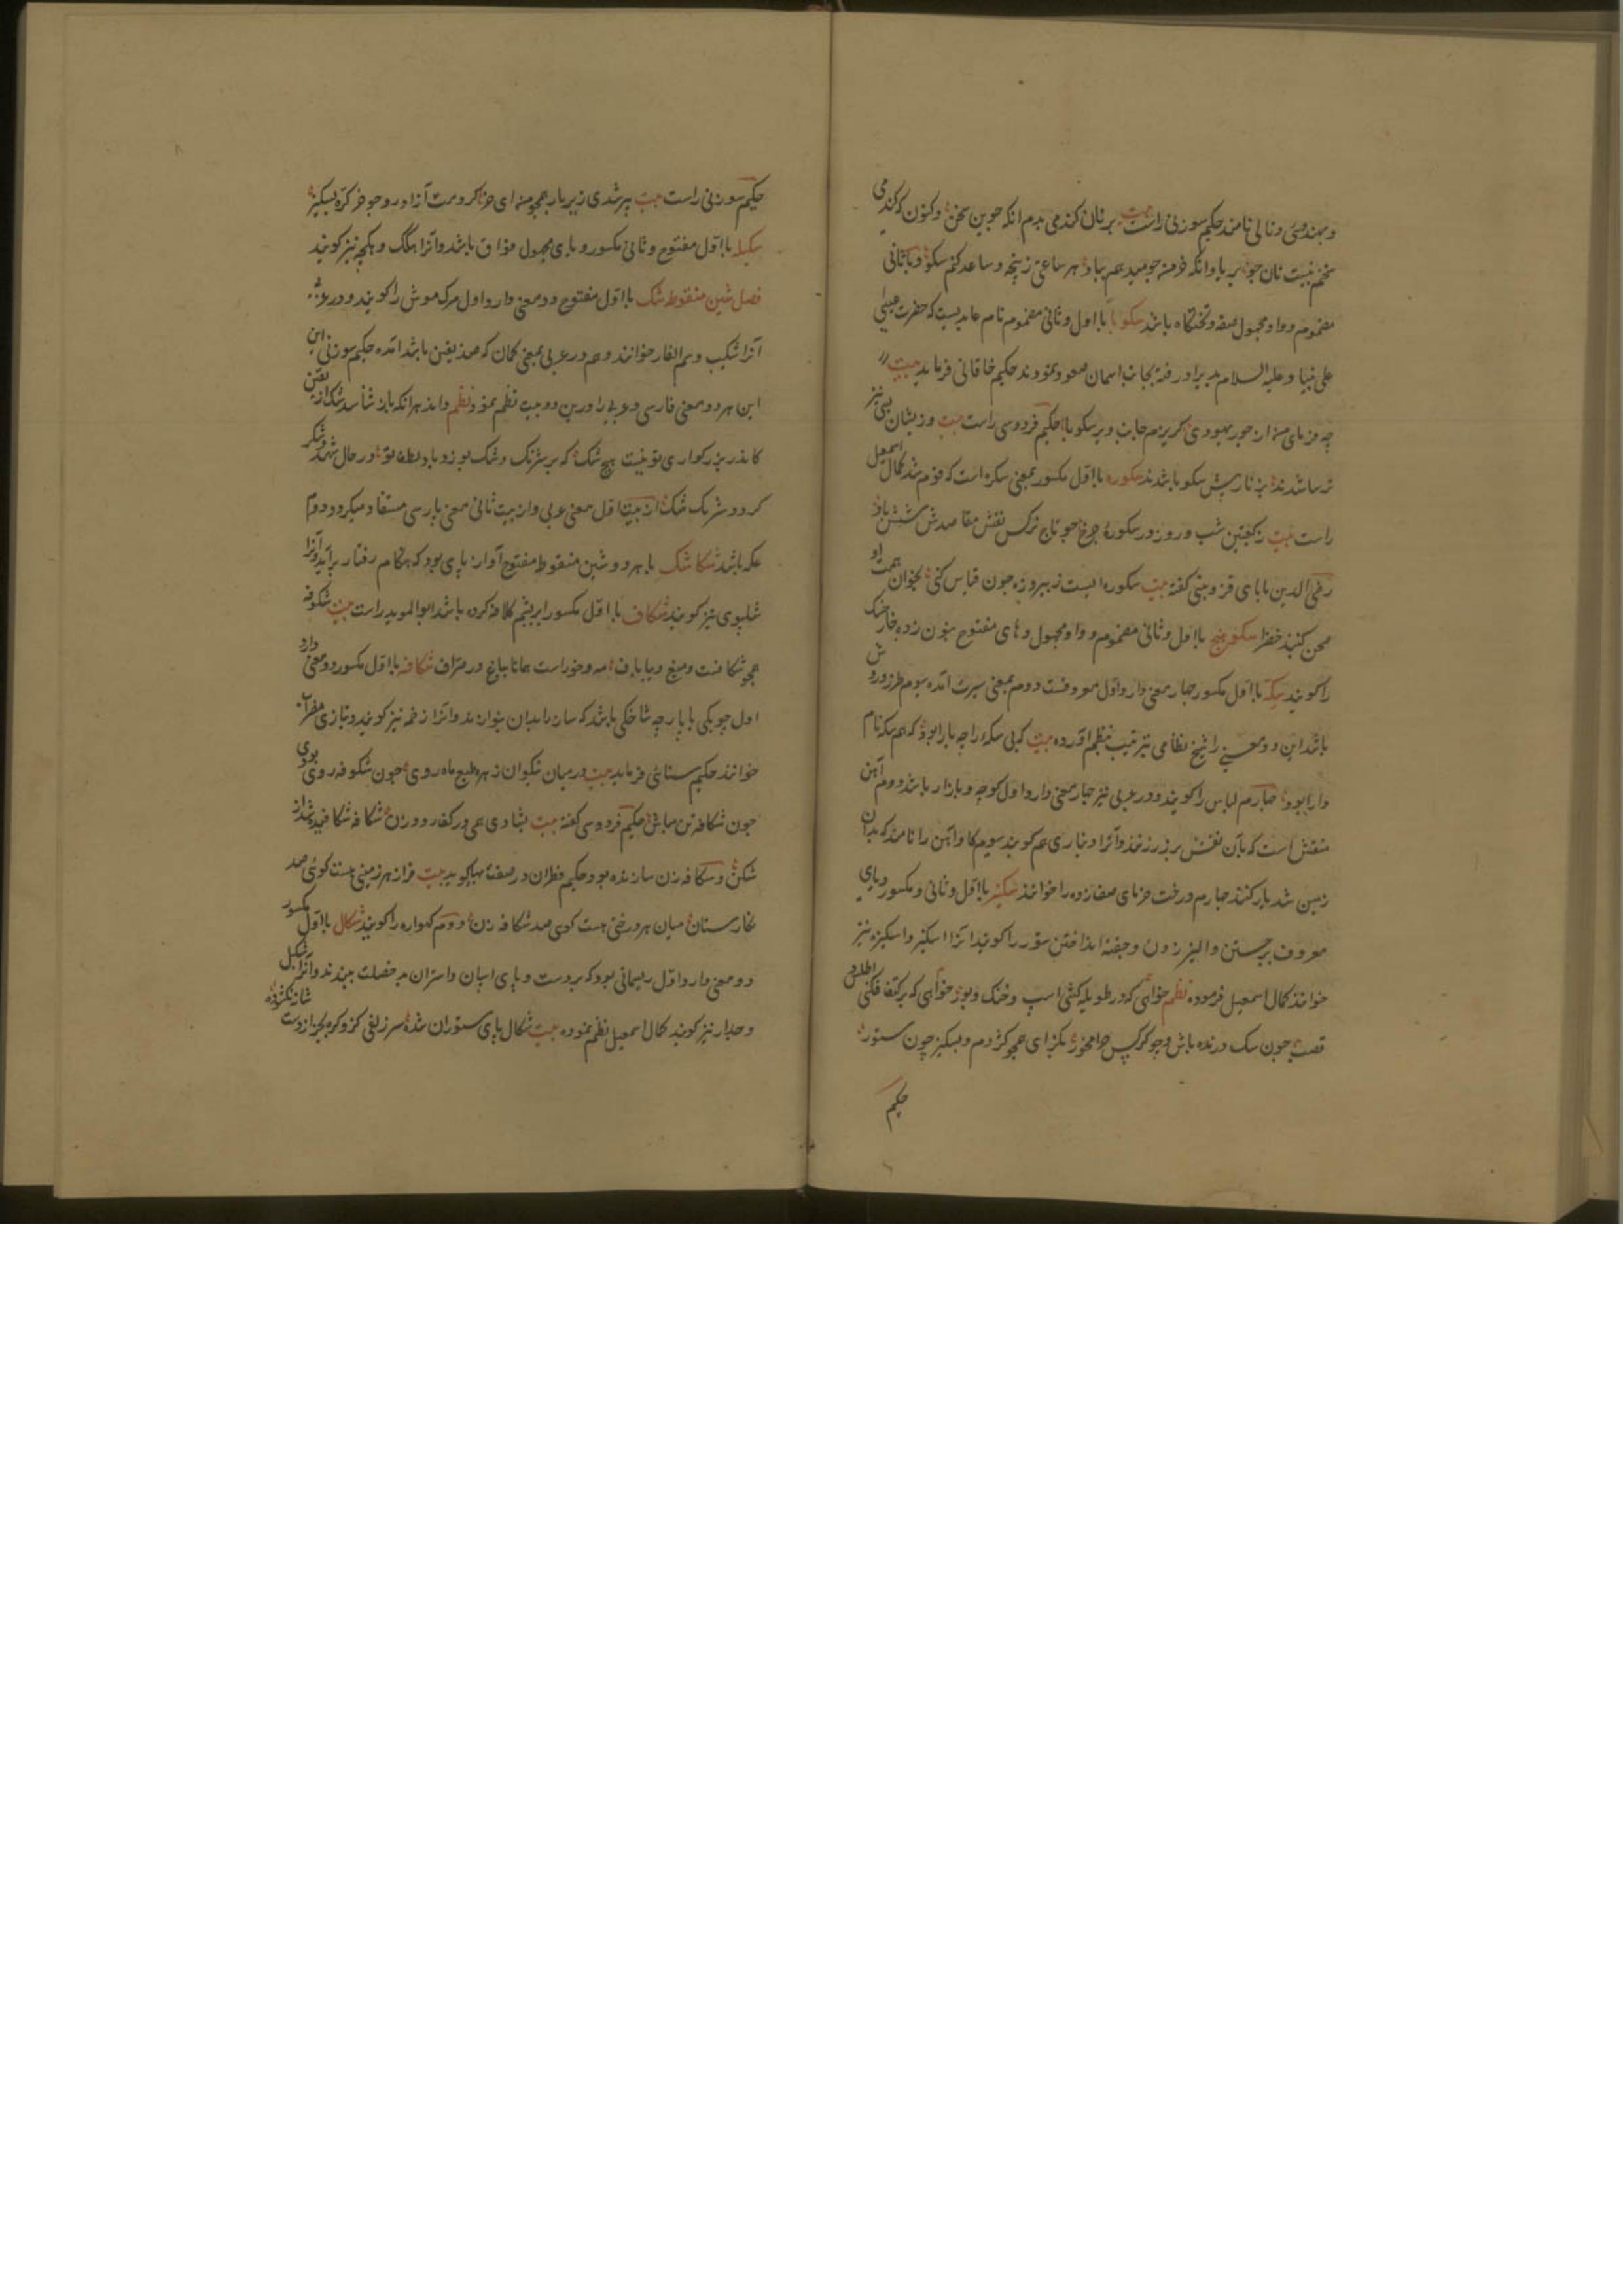 و بهندوی دنالی نامند حکیم سوزنی راست بیت بر نان کندمی بدم انکه جوین سخن وکنون که کندمی
سخنم نیست نان جو بر باد انکه خرمن جو میدهم بباد هر ساعتی ز پنجه و ساعد کنم سکو و باثانی
مضموم و واو مجهول صفه و تختکاه باشد سکوبا بااول و ثانی مضموم نام عابدیست که حضرت عیسی
علی نبینا وعلیه السلام بدیر او رفته بجانب اسمان صعود نمودند حکیم خاقانی فرماید بیت
چه فرمایی من از جور یهودی کریزم جانب دیر سکوبا حکیم فردوسی راست بیت وزیشان بسی نیز
ترسا شدند بزنار پیش سکوبا شدند سکوره بااول مکسور بمعنی سکره است که مرقوم شد کمال اسمعیل
راست بیت ز کعبتین شب و روز در سکوره چرخ چو تاج نرکس نقش مقاصدش شش باد
رضی الدین بابای قزوینی کفته بیت سکوره ایست ز پیروزه چون قیاس کنی بخوان همت او
صحن کنبد خضرا سکوهنج بااول و ثانی مضموم و واو مجهول و های مفتوح بنون زده خارخسک
را کویند سکه بااول مکسور چهار معنی دارد اول معروفست دوم بمعنی سیرت آمده سوم طرز و روش
باشد این دو معنی را شیخ نظامی بترتیب بنظم آورده بیت کبی سکه را چه یارا بود که هم سکه نام
دارا بود چهارم لباس را کویند و در عربی نیز چهار معنی دارد اول کوچه و بازار باشد دوم آهن
منقش است که بآن نقش بر زر زنند و آنرا دینار ی هم کویند سیوم کاو آهن را نامند که بدان
زمین شد یار کنند چهارم درخت خرمای صف زده را خوانند سکیز بااول و ثانی مکسور و یای
معروف برجستن و الیز زدن و جفته انداختن ستور را کویند و آنرا اسکیز و اسکیزه نیز
خوانند کمال اسمعیل فرموده نظم خواهی که در طویله کشی اسپ و خنک و بوز خواهی که بر کتف فکنی اطلس
قصب چون سک درنده باش و چو کرکس حرام خور بکزای همچو کژدم و بسکیز چون ستور
حکیم
حکیم سوزنی راست بیت پیر شدی زیر بار همچو منه ای خر کره مست آزاد رو چو خر کره بسکیز
سکیله بااول مفتوح و ثانی مکسور و یای مجهول فواق باشد و آنرا هکک و هکچه نیز کویند
فصل شین منقوطه شک بااول مفتوح دو معنی دارد اول مرک موش را کویند و در عربی
آنرا شکیب و سم الفار خوانند و هم در عربی بمعنی کمان که ضد یقین باشد آمده حکیم سوزنی این
این هر دو معنی فارسی و عربی را درین دو بیت نظم نموده نظم داند هر انکه باز شناسد شک از یقین
کاندر بزرکواری تو نیست هیچ شک که بر شرنک و شک بوزد باد لطف تو در حال شهد و شکر
کردد شرنک شک از بیت اول معنی عربی و از بیت ثانی معنی پارسی مستفاد میکردد دوم
عکه باشد شکاشک با هر دو شین منقوط مفتوح آواز پای بود که هنکام رفتار برآید و آنرا
شلپوی نیز کویند شکاف بااول مکسور ابریشم کلافه کرده باشد ابو الموید راست بیت شکوفه
همچو شکافست و میغ دیبا باف مه و خوراست همانا بباغ در صراف شکافه بااول مکسور دو معنی دارد
اول چوبکی یا پارچه شاخکی باشد که ساز را بدان بنوازند و آنرا زخمه نیز کویند و بتازی مضراب
خوانند حکیم سنائی فرماید بیت در میان نکوان زهره طبع ماه روی چون شکوفه روی بودی
چون شکافه زن مباش حکیم فردوسی کفته بیت بشادی همی در کف رود زن شکافه شکافید شد از
شکن وسکافه زن سازنده بود و حکیم قطران در صفت بهار کوید بیت فراز هر زمینی هست کوئی صد
نخارستان میان هر درختی هست کوی صد شکافه زن دوم کهواره را کویند شکال بااول مکسور
دو معنی دارد اول ریسمانی بود که بر دست و پای اسپان و استران بد خصلت ببندند و آنرا شکیل
و جدار نیز کویند کمال اسمعیل نظم نموده بیت شکال پای ستوران شده سر زلفی کزو کره بجز از دست شانه نکشوده